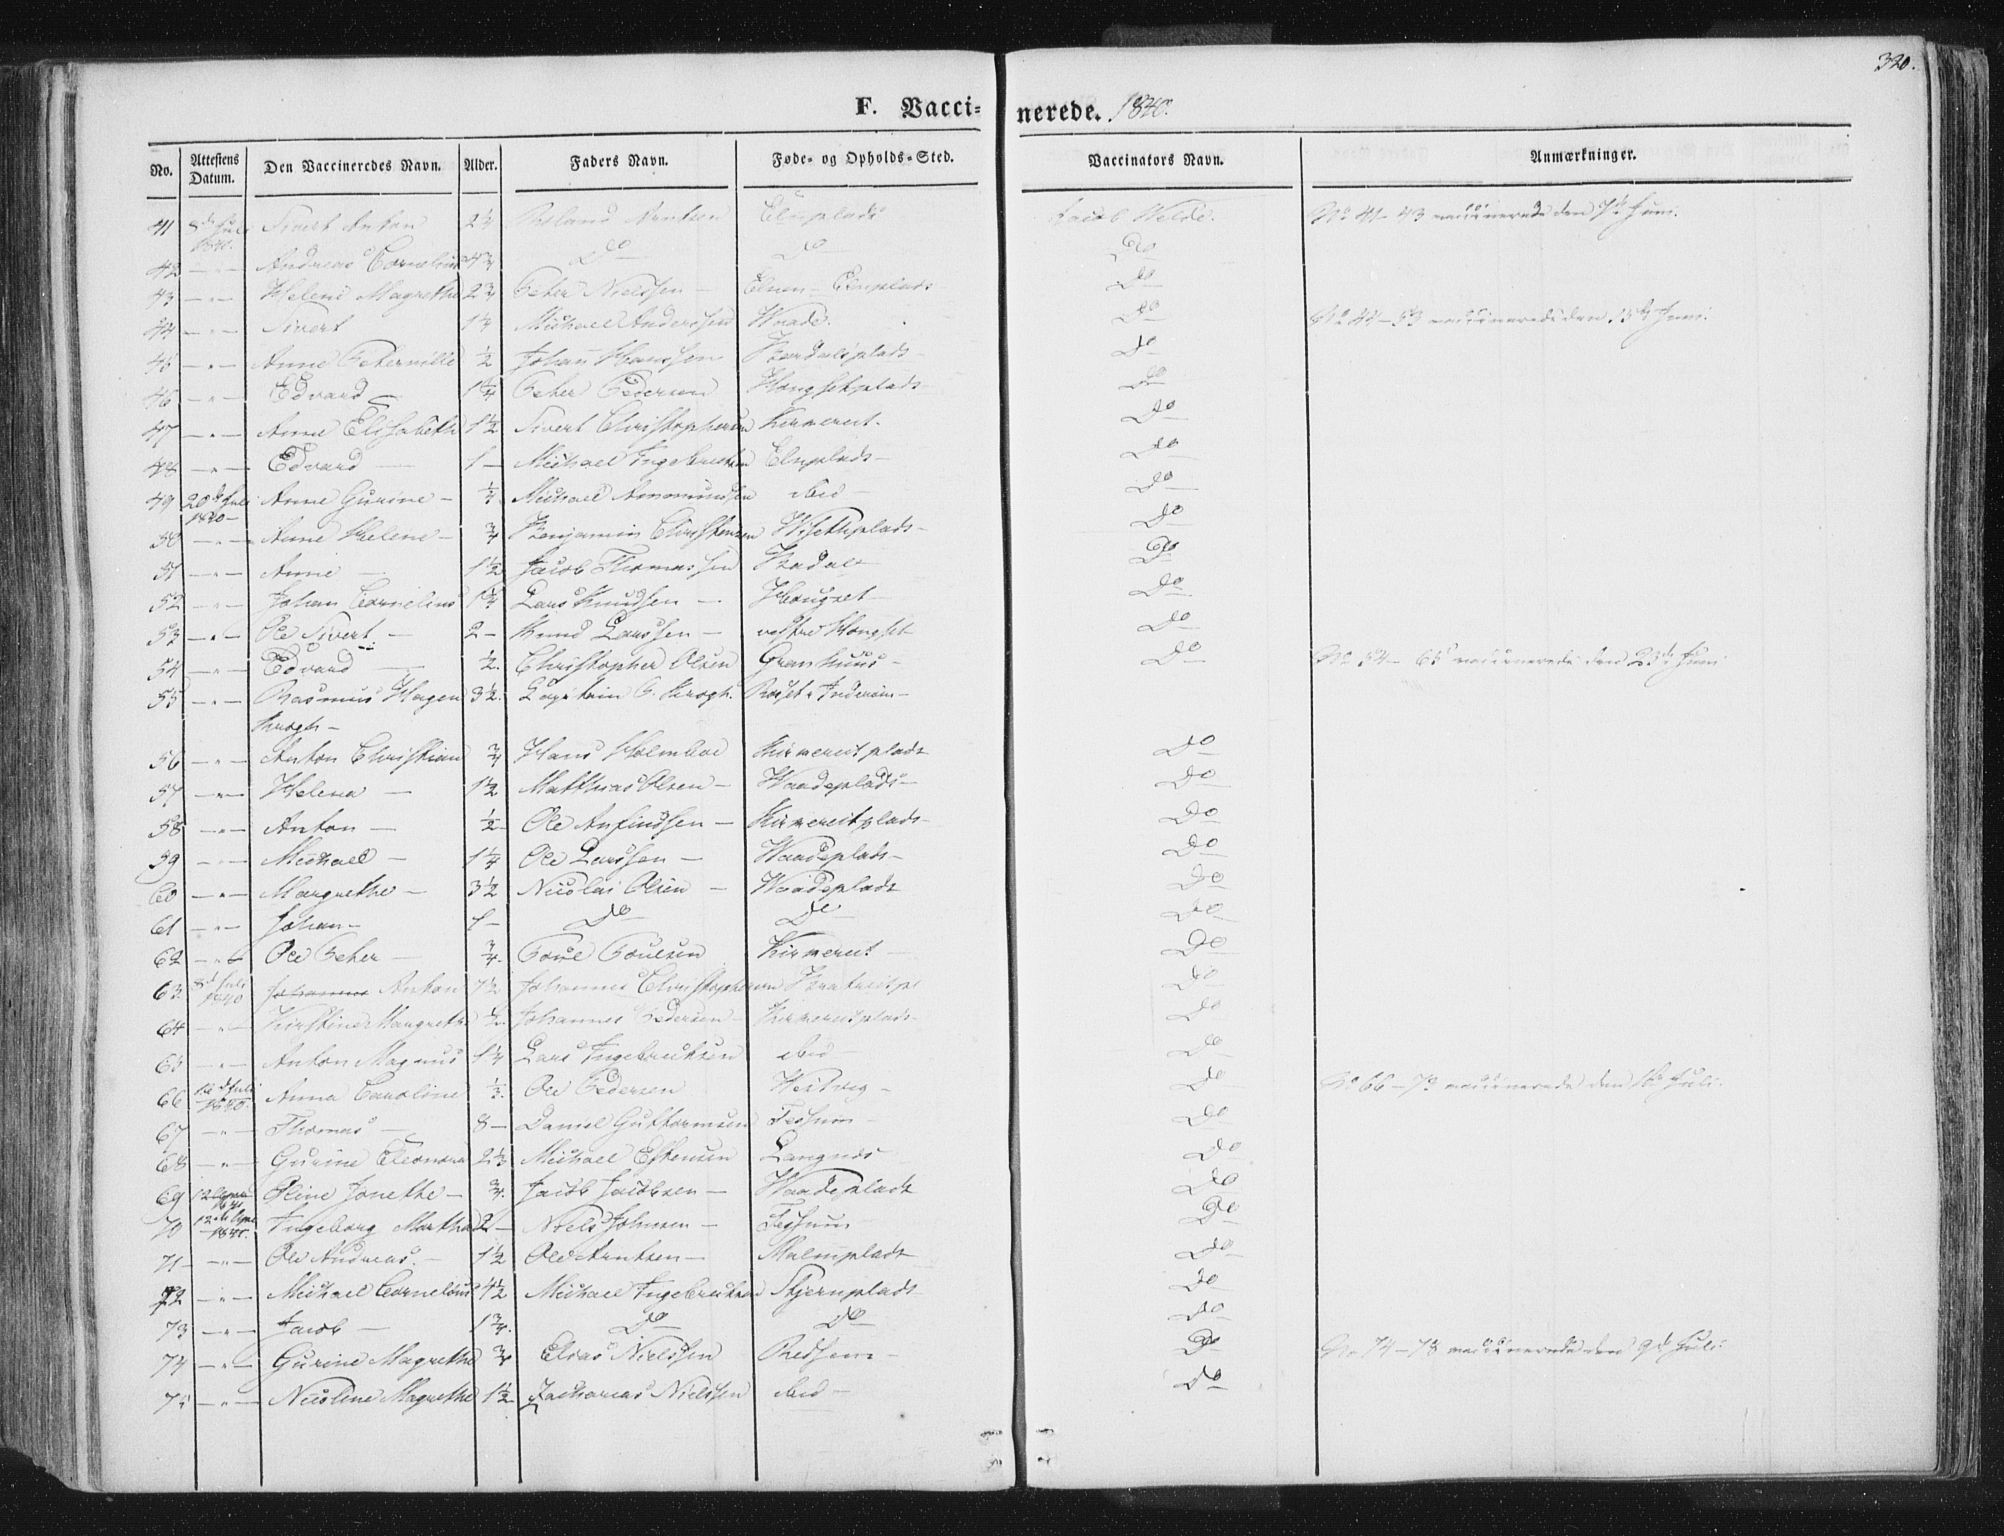 320.
F. Vaccinerede. 1840.
No. Attestens Datum. Den Vaccineredes Navn. Alder. Faders Navn. Føde- og Opholds-Sted. Vaccinators Navn. Anmærkninger.
41 8de Juli 1840. Sivert Anton 2¼ Arntsen Elnplads Jacob Welde. No 41-43 vaccinerede den 7de Juni.
42 — " — Andreas Cornelius 4¾ Do Do Do
43 — " — Helene Magrethe 2¾ Peter Nielssen — Elnplads Do
44 — " — Sivert 1¼ Michael Anderssen Waade. Do No 44-53 vaccinerede den 15de Juni.
45 — " — Anne Peternille ½ Johan Hanssen Do
46 — " — Edvard 1¼ Peter Pedersen Hougsetplads Do
47 — " — Anne Elisabeth 1½ Sivert Christophersen Kirkereit. Do
48 — " — Edvard — 1 — Michael Ingebrigtsen Elnplads — Do
49 20de Juli 1840 — Anne Gurine — ¼ Michael Ammundsen ibid Do
50 — " — Anne Helene — ¾ Benjamin Christensen Wisethplads — Do
51 — " — Anne — 1½ Jacob Thomassen Do
52 — " — Johan Cornelius 1¼ Lars Knudsen — Hougset — Do
53 — " — Ole Sivert — 2 — Knud Larssen — vestre Hougset Do
54 — " — Edvard — ½. Christopher Olsen Granhuus — Do No 54-65 vaccinerede den 23de Juni
55 — " — Rasmus Hagen Krogh — 3½. Capitain G. Krogh. Roset i Inderøen —
56 — " — Anton Christian ¾ Hans Holmboe Kirkereitplads Do
57 — " — Helena — 1½ Matthias Olsen — Waadeplads — Do
58 — " — Anton — ½ Ole Anfindsen — Kirkereitplads — Do
59 — " — Michael — 1¼ Ole Larssen — Waadeplads — Do
60 — " — Margrethe — 3½ Nicolai Olsen — Waadeplads Do
61 — " — Johan — 1 — Do Do Do
62 — " — Ole Peter — ¾. Poul Poulsen Kirkereit — Do
63 8de Juli 1840 Johannes Anton 7½ Johannes Christophersen Do
64 — " — Kirstine Margrethe ½. Johannes Pedersen — Kirkereitplads — Do
65 — " — Anton Magnus 1¼ Lars Ingebrigtsen ibid — Do
66 16de Juli 1840. Anna Caroline Ole Pedersen Westvig — Do No 66-73 vaccinerede den Juli.
67 — " — Thomas — 8 — Daniel Guttormsen Tessum — Do
68 — " — Gurine Eleonora Michael Estensen Langnes Do
69 Oline Jonethe — ¾. Jacob Jacobsen — Waadeplads Do
70 Ingeborg Martha 2 — Niels Johnsen — Tessum — Do
71 — " — Ole Andreas. — 1½ Ole Arntsen — Malmplads Do
72 — " — Michael Cornelius 4½ Michael Ingebrigtsen Stjernplads Do
73 — " — Jacob — 1¾. Do Do Do
74 — " — Gurine Magrethe ¾ Elias Nielssen Do No 74-78 vaccinerede den 9de Juli
75 — " — Nicoline Magrethe 1½ Zacharias Nielssen ibid — Do